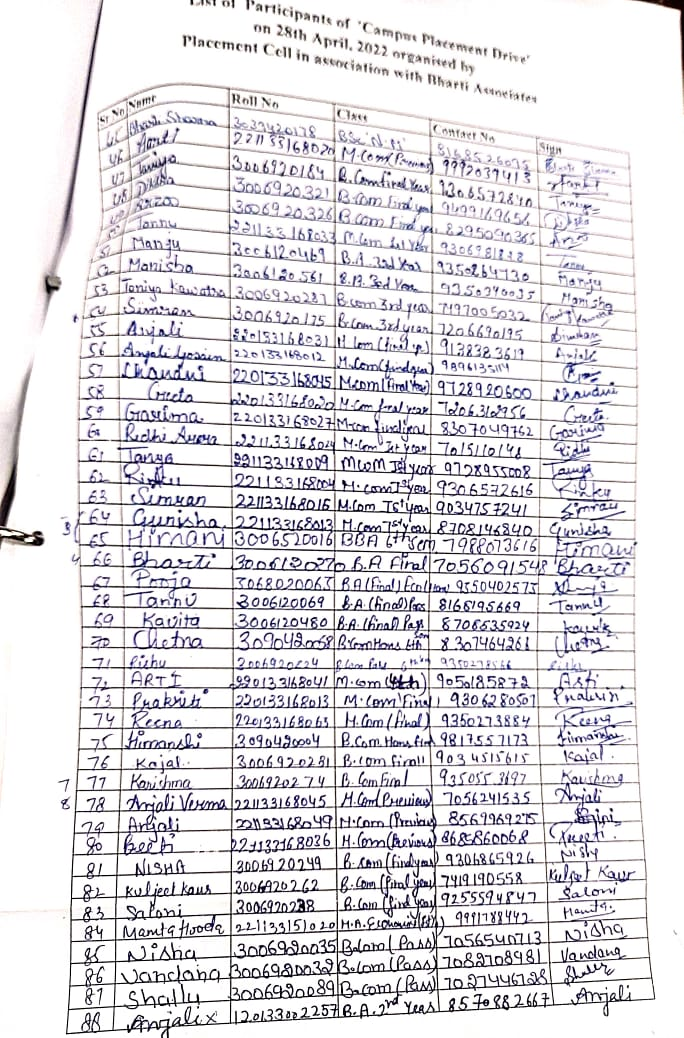 List of Participants of 'Campus Placement Drive'
on 28th April, 2022 organised by
Placement Cell in association with Bharti Associates
Sr. No Name Roll No Class Contact No Sign
45 Sharma 3039420178 8168526035
46 Aarti 221133168020 M.Com (Previous) 9992039413 Aarti
47 Taniya 3006920184 B.Com final Year 9306572840 Taniya
48 3006920321 B.Com Final year 9499169656
3006920326 B.Com Final year 8295090365
Tannu 221133168033 M.Com 1st Year Tannu
51 Manju 3006120469 B.A. 3rd Year 9350264730 Manju
52 Manisha 3006120561 B.A. 3rd Year 9350340035 Manisha
53 Taniya Kawatra 3006920287 B.com 3rd year 7497005032
54 Simran 3006920175 B.com 3rd year 7206690195 Simran
55 Anjali 220133168031 M.Com (final yr) 913838 3619 Anjali
56 Anjali 220133168012 M.Com (final year) 9896135114
57 Chandni 220133168045 M.com (final Year) 9728920600 Chandni
58 Geeta 220133168020 M.Com final year 7206312956 Geeta
59 Garima 220133168027 M.com final year 8307049762 Garima
60 Ridhi Arora 221133168024 M.Com 1st year 7015110148 Ridhi
61 Tanya 221133168009 MCOM 1st year 9728955008 Tanya
62 Rinku 221133168004 M.com 1st year 9306572616 Rinku
63 Simran 221133168016 M.Com 1st year 9034757241 Simran
3 64 Gunisha 221133168013 M.com 1st year 8708146840 Gunisha
65 Himani 3006520016 BBA 6th sem 7988073616 Himani
4 66 Bharti 3006120270 B.A Final 7056091548 Bharti
67 Pooja 3068020063 BA (Final) 9350402575
68 Tannu 3006120069 B.A. (Final) Pass 8168195669 Tannu
69 Kavita 3006120480 B.A. (final) Pass 8708535924
70 Chetna 3090420058 B.Com Hons 6th sem 8307464261 Chetna
71 Rishu 3006920224 9350278566
72 ARTI 220133168041 M.com (4th) 9050185872 Arti
73 Prakriti 220133168013 M.Com (Final) 9306280507 Prakriti
74 Reena 220133168063 M.Com (final) 9350273884 Reena
75 Himanshi 3090420004 B.Com. Hons. 9817557173 Himanshi
76 Kajal 3006920281 B.Com Final 9034515615 Kajal
7 77 Karishma 3006920274 B.Com Final 935055 3697 Karishma
8 78 Anjali Verma 221133168045 M.Com (Previous) 7056241535 Anjali
79 Anjali 221133168049 M.Com (Previous) 8569969275
80 Preeti 221133168036 M.Com (Previous) 8685860068 Preeti
81 NISHA 3006920249 B.Com (final year) 9306865926 Nisha
82 Kuljeet Kaur 3006920262 B.Com (final year) 7419190558 Kuljeet Kaur
83 Saloni 3006920238 B.Com (final year) 9255594847 Saloni
84 Mamta Hooda 221133151020 M.A. Economics 9991788442 Mamta
85 Nisha 3006920035 B.Com (Pass) 7056540713 Nisha
86 Vandana 3006920032 B.Com (Pass) 7082708981 Vandana
87 Shally 3006920089 B.Com (Pass) 7027446728 Shally
88 Anjali x 120133002257 B.A. 2nd Year 8570882667 Anjali